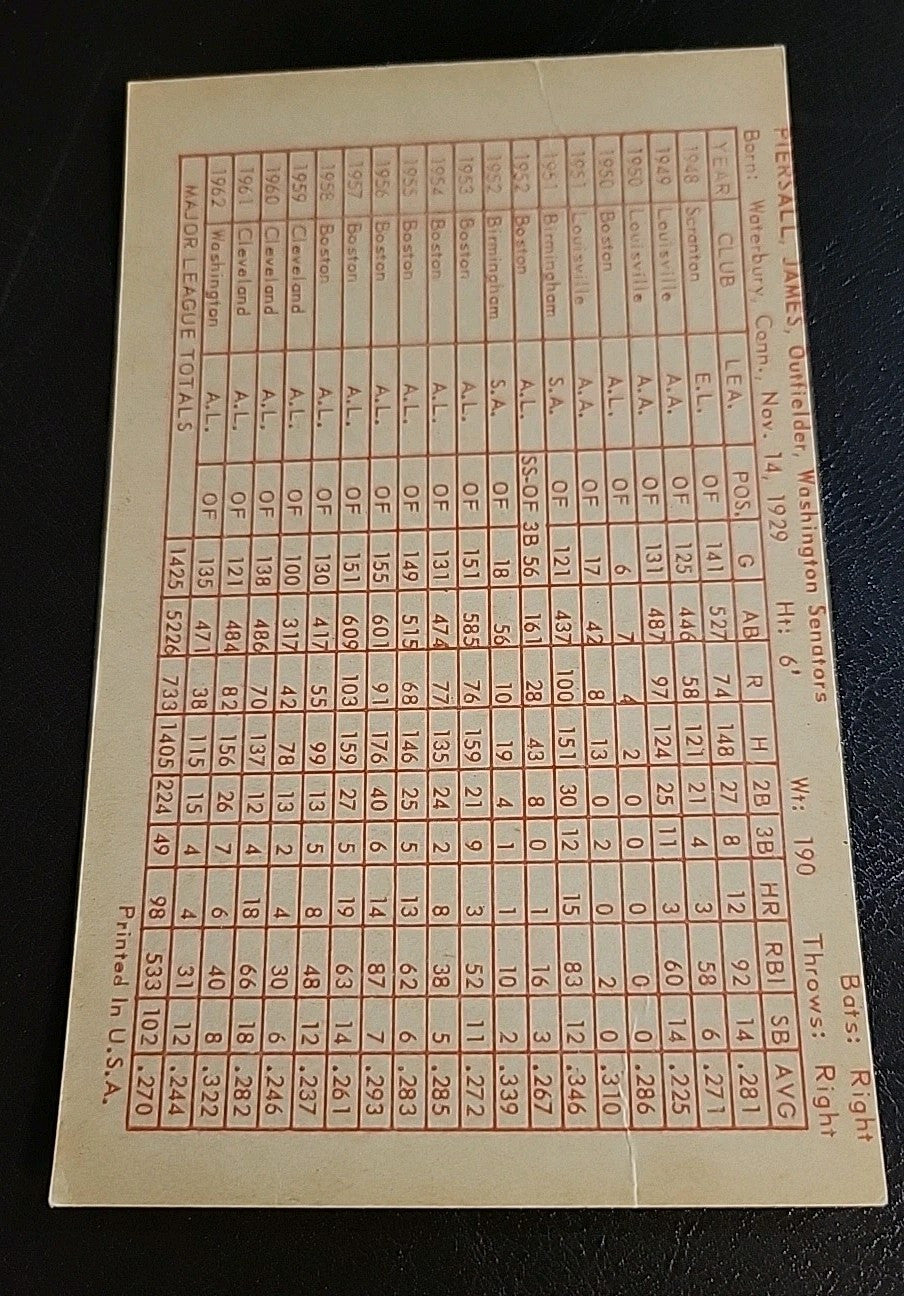 PIERSALL, JAMES, Outfielder, Washington Senators Bats: Right
Born: Waterbury, Conn., Nov. 14, 1929 Ht: 6' Wt: 190 Throws: Right
YEAR CLUB LEA. POS. G AB R H 2B 3B HR RBI SB AVG
1948 Scranton E.L. OF 141 527 74 148 27 8 12 92 14 .281
1949 Louisville A.A. OF 125 446 58 121 21 4 3 58 6 .271
1950 Louisville A.A. OF 131 487 97 124 25 11 3 60 14 .225
1950 Boston A.L. OF 6 7 4 2 0 0 0 0 0 .286
1951 Louisville A.A. OF 17 42 8 13 0 2 0 2 0 .310
1951 Birmingham S.A. OF 121 437 100 151 30 12 15 83 12 .346
1952 Boston A.L. SS-OF 3B 56 161 28 43 8 0 1 16 3 .267
1952 Birmingham S.A. OF 18 56 10 19 4 1 1 10 2 .339
1953 Boston A.L. OF 151 585 76 159 21 9 3 52 11 .272
1954 Boston A.L. OF 131 474 77 135 24 2 8 38 5 .285
1955 Boston A.L. OF 149 515 68 146 25 5 13 62 6 .283
1956 Boston A.L. OF 155 601 91 176 40 6 14 87 7 .293
1957 Boston A.L. OF 151 609 103 159 27 5 19 63 14 .261
1958 Boston A.L. OF 130 417 55 99 13 5 8 48 12 .237
1959 Cleveland A.L. OF 100 317 42 78 13 2 4 30 6 .246
1960 Cleveland A.L. OF 138 486 70 137 12 4 18 66 18 .282
1961 Cleveland A.L. OF 121 484 82 156 26 7 6 40 8 .322
1962 Washington A.L. OF 135 471 38 115 15 4 4 31 12 .244
MAJOR LEAGUE TOTALS 1425 5226 733 1405 224 49 98 533 102 .270
Printed In U.S.A.